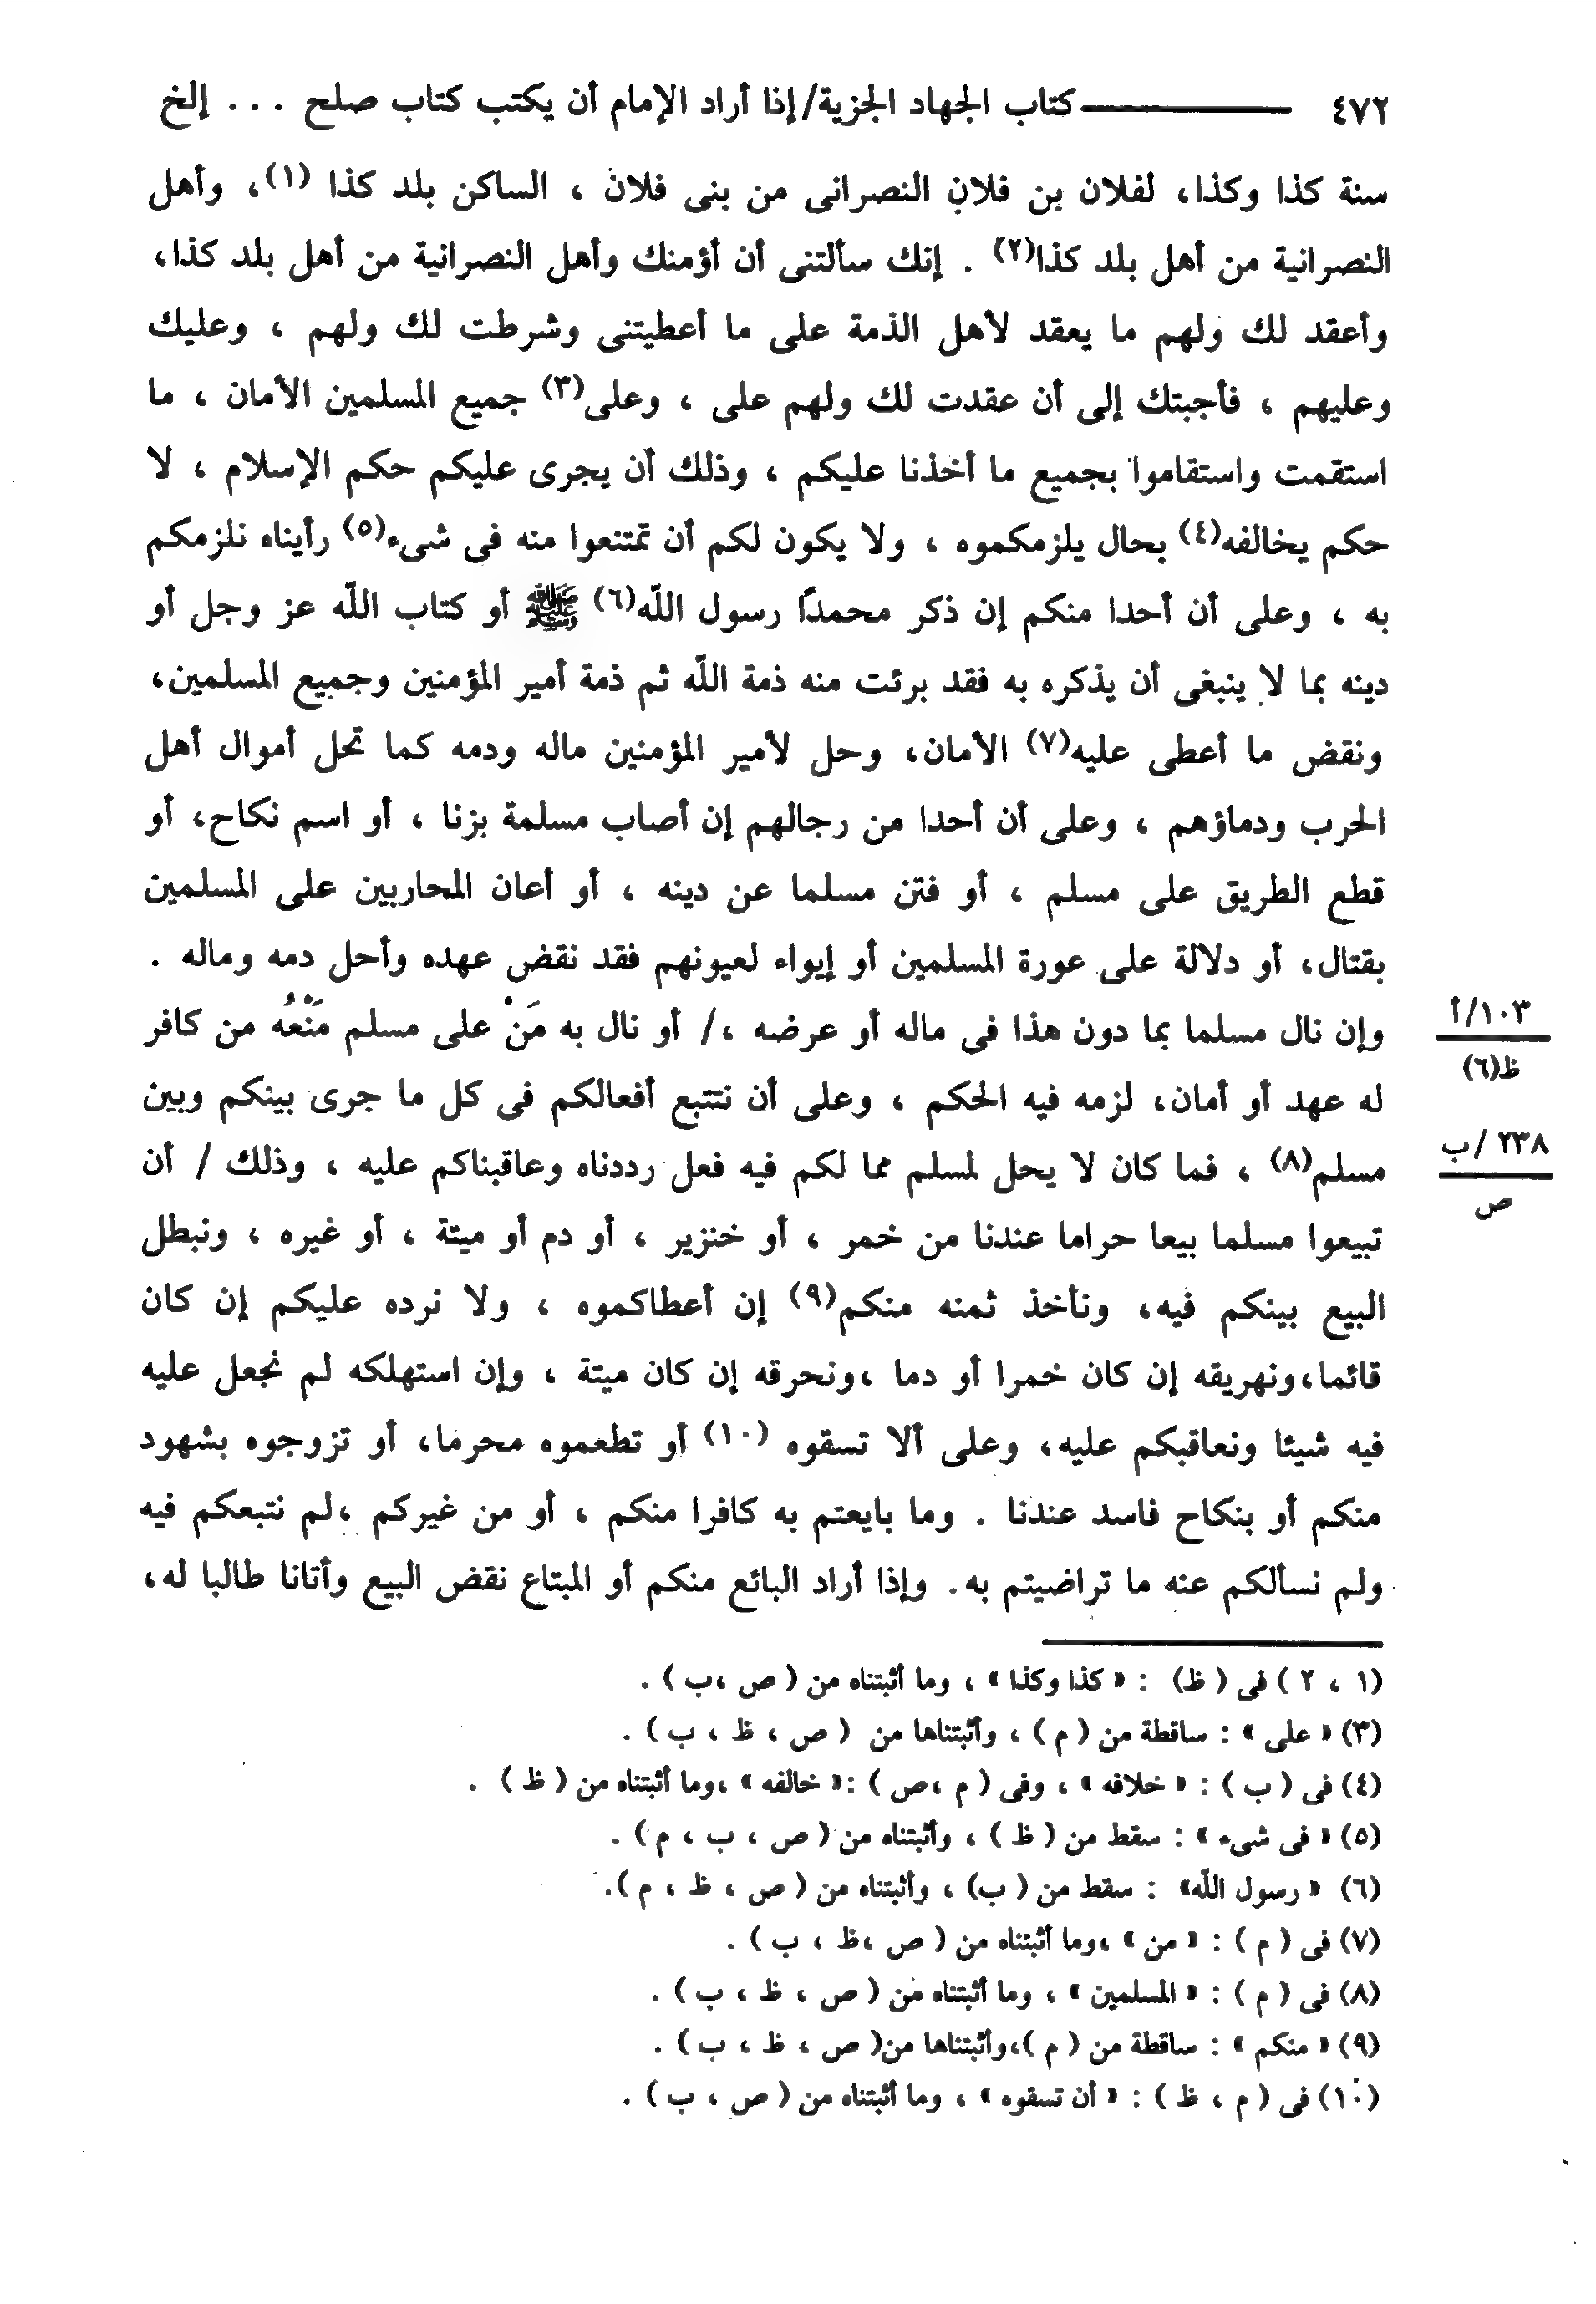 ٤٧٢ كتاب الجهاد الجزية/ إذا أراد الإمام أن يكتب كتاب صلح . . . إلخ
سنة كذا وكذا، لفلان بن فلان النصرانى من بنى فلان ، الساكن بلد كذا (١)، وأهل
النصرانية من أهل بلد كذا(٢) . إنك سألتنى أن أؤمنك وأهل النصرانية من أهل بلد كذا،
وأعقد لك ولهم ما يعقد لأهل الذمة على ما أعطيتنى وشرطت لك ولهم ، وعليك
وعليهم ، فأجبتك إلى أن عقدت لك ولهم على ، وعلى(٣) جميع المسلمين الأمان ، ما
استقمت واستقاموا بجميع ما أخذنا عليكم ، وذلك أن يجرى عليكم حكم الإسلام ، لا
حكم يخالفه(٤) بحال يلزمكموه ، ولا يكون لكم أن تمتنعوا منه فى شىء(٥) رأيناه نلزمكم
به ، وعلى أن أحدا منكم إن ذكر محمدًا رسول اللّه(٦) ﷺ أو كتاب اللّه عز وجل أو
دينه بما لا ينبغى أن يذكره به فقد برئت منه ذمة اللّه ثم ذمة أمير المؤمنين وجميع المسلمين،
ونقض ما أعطى عليه(٧) الأمان، وحل لأمير المؤمنين ماله ودمه كما تحل أموال أهل
الحرب ودماؤهم ، وعلى أن أحدا من رجالهم إن أصاب مسلمة بزنا ، أو اسم نكاح، أو
قطع الطريق على مسلم ، أو فتن مسلما عن دينه ، أو أعان المحاربين على المسلمين
بقتال، أو دلالة على عورة المسلمين أو إيواء لعيونهم فقد نقض عهده وأحل دمه وماله .
وإن نال مسلما بما دون هذا فى ماله أو عرضه ،/ أو نال به مَنْ على مسلم مَنْعُه من كافر
١٠٣/أ
ظ(٦)
له عهد أو أمان، لزمه فيه الحكم ، وعلى أن نتتبع أفعالكم فى كل ما جرى بينكم وبين
مسلم(٨) ، فما كان لا يحل لمسلم مما لكم فيه فعل رددناه وعاقبناكم عليه ، وذلك / أن
٢٣٨ /ب
ص
تبيعوا مسلما بيعا حراما عندنا من خمر ، أو خنزير ، أو دم أو ميتة ، أو غيره ، ونبطل
البيع بينكم فيه، ونأخذ ثمنه منكم(٩) إن أعطاكموه ، ولا نرده عليكم إن كان
قائما،ونهريقه إن كان خمرا أو دما ،ونحرقه إن كان ميتة ، وإن استهلكه لم نجعل عليه
فيه شيئا ونعاقبكم عليه، وعلى ألا تسقوه (١٠) أو تطعموه محرما، أو تزوجوه بشهود
منكم أو بنكاح فاسد عندنا . وما بايعتم به كافرا منكم ، أو من غيركم ،لم نتبعكم فيه
ولم نسألكم عنه ما تراضيتم به. وإذا أراد البائع منكم أو المبتاع نقض البيع وأتانا طالبا له،
(١ ، ٢ ) فى ( ظ) : « كذا وكذا » ، وما أثبتناه من ( ص ،ب ) .
(٣) « على » : ساقطة من ( م ) ، وأثبتناها من ( ص ، ظ ، ب ) .
(٤) فى ( ب ) : « خلافه » ، وفى ( م ،ص ) :« خالفه » ،وما أثبتناه من ( ظ ) .
(٥) « فى شىء » : سقط من ( ظ ) ، وأثبتناه من ( ص ، ب ، م ) .
(٦) « رسول اللّه» : سقط من ( ب) ، وأثبتناه من ( ص ، ظ ، م ).
(٧) فى ( م ) : « من » ،وما أثبتناه من ( ص ،ظ ، ب ) .
(٨) فى ( م ) : « المسلمين » ، وما أثبتناه من ( ص ، ظ ، ب ) .
(٩) « منكم » : ساقطة من ( م )،وأثبتناها من( ص ، ظ ، ب ) .
(١٠) فى ( م ، ظ ) : « أن تسقوه » ، وما أثبتناه من ( ص ، ب ) .